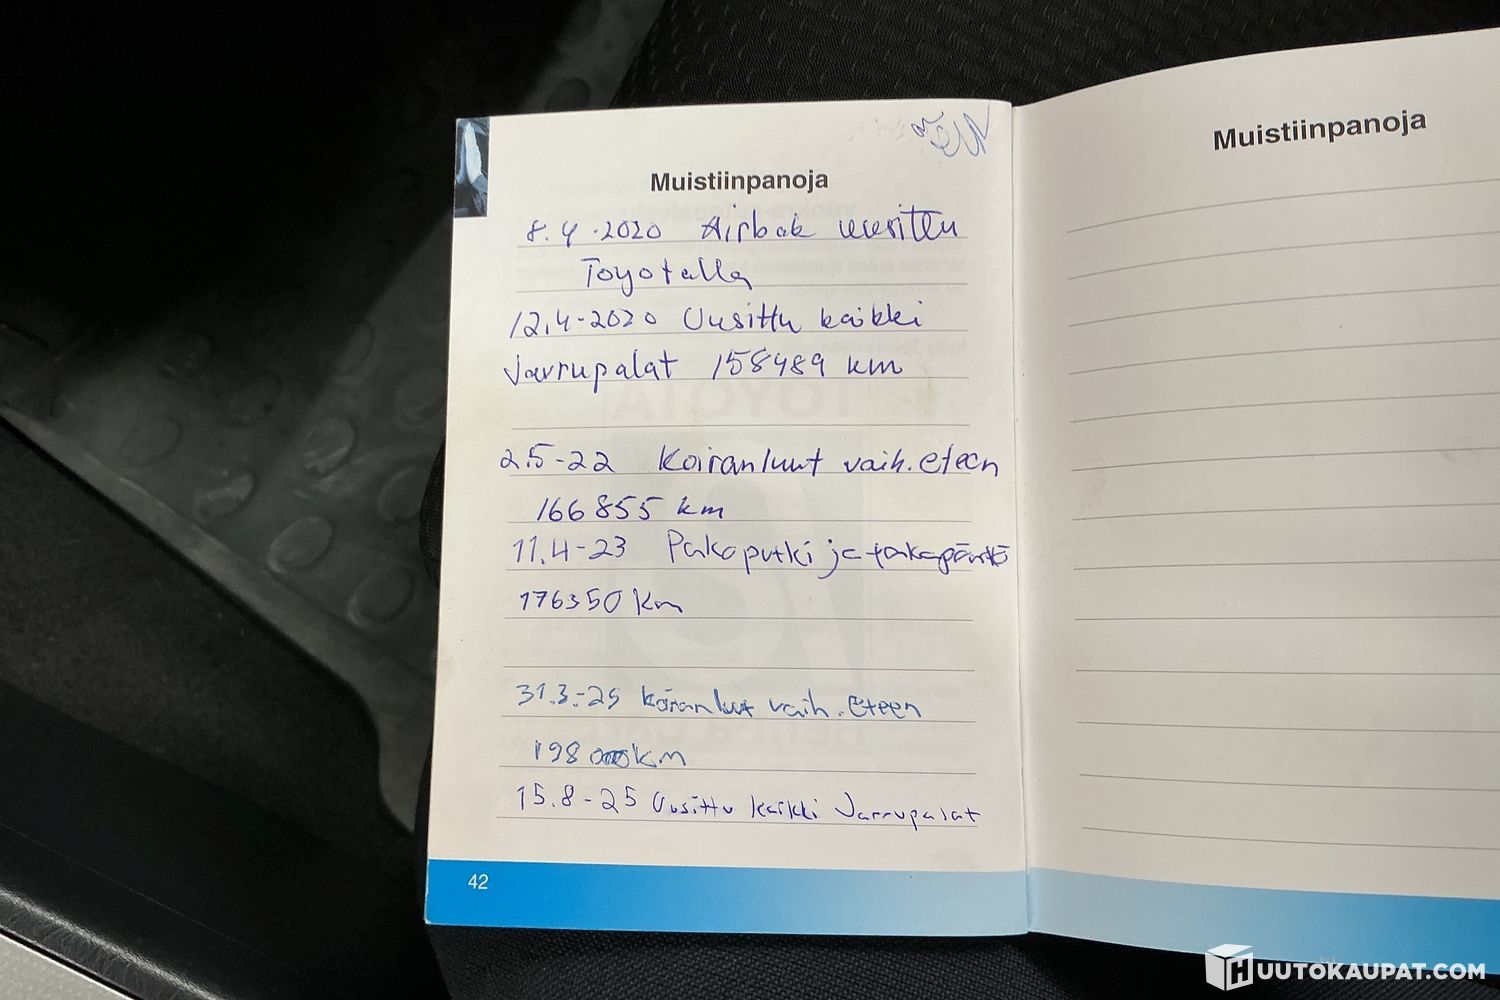 Muistiinpanoja
8.4.2020 Airbak uusittu
Toyotalla
12.4-2020 Uusittu kaikki
Jarrupalat 158489 km
2.5-22 Koiranluut vaih. eteen
166855 km
11.4-23 Pakoputki ja takapönttö
176350 km
31.3.-25 koiranluut vaih. eteen
198 000 km
15.8-25 Uusittu kaikki Jarrupalat
42
Muistiinpanoja
HUUTOKAUPAT.COM